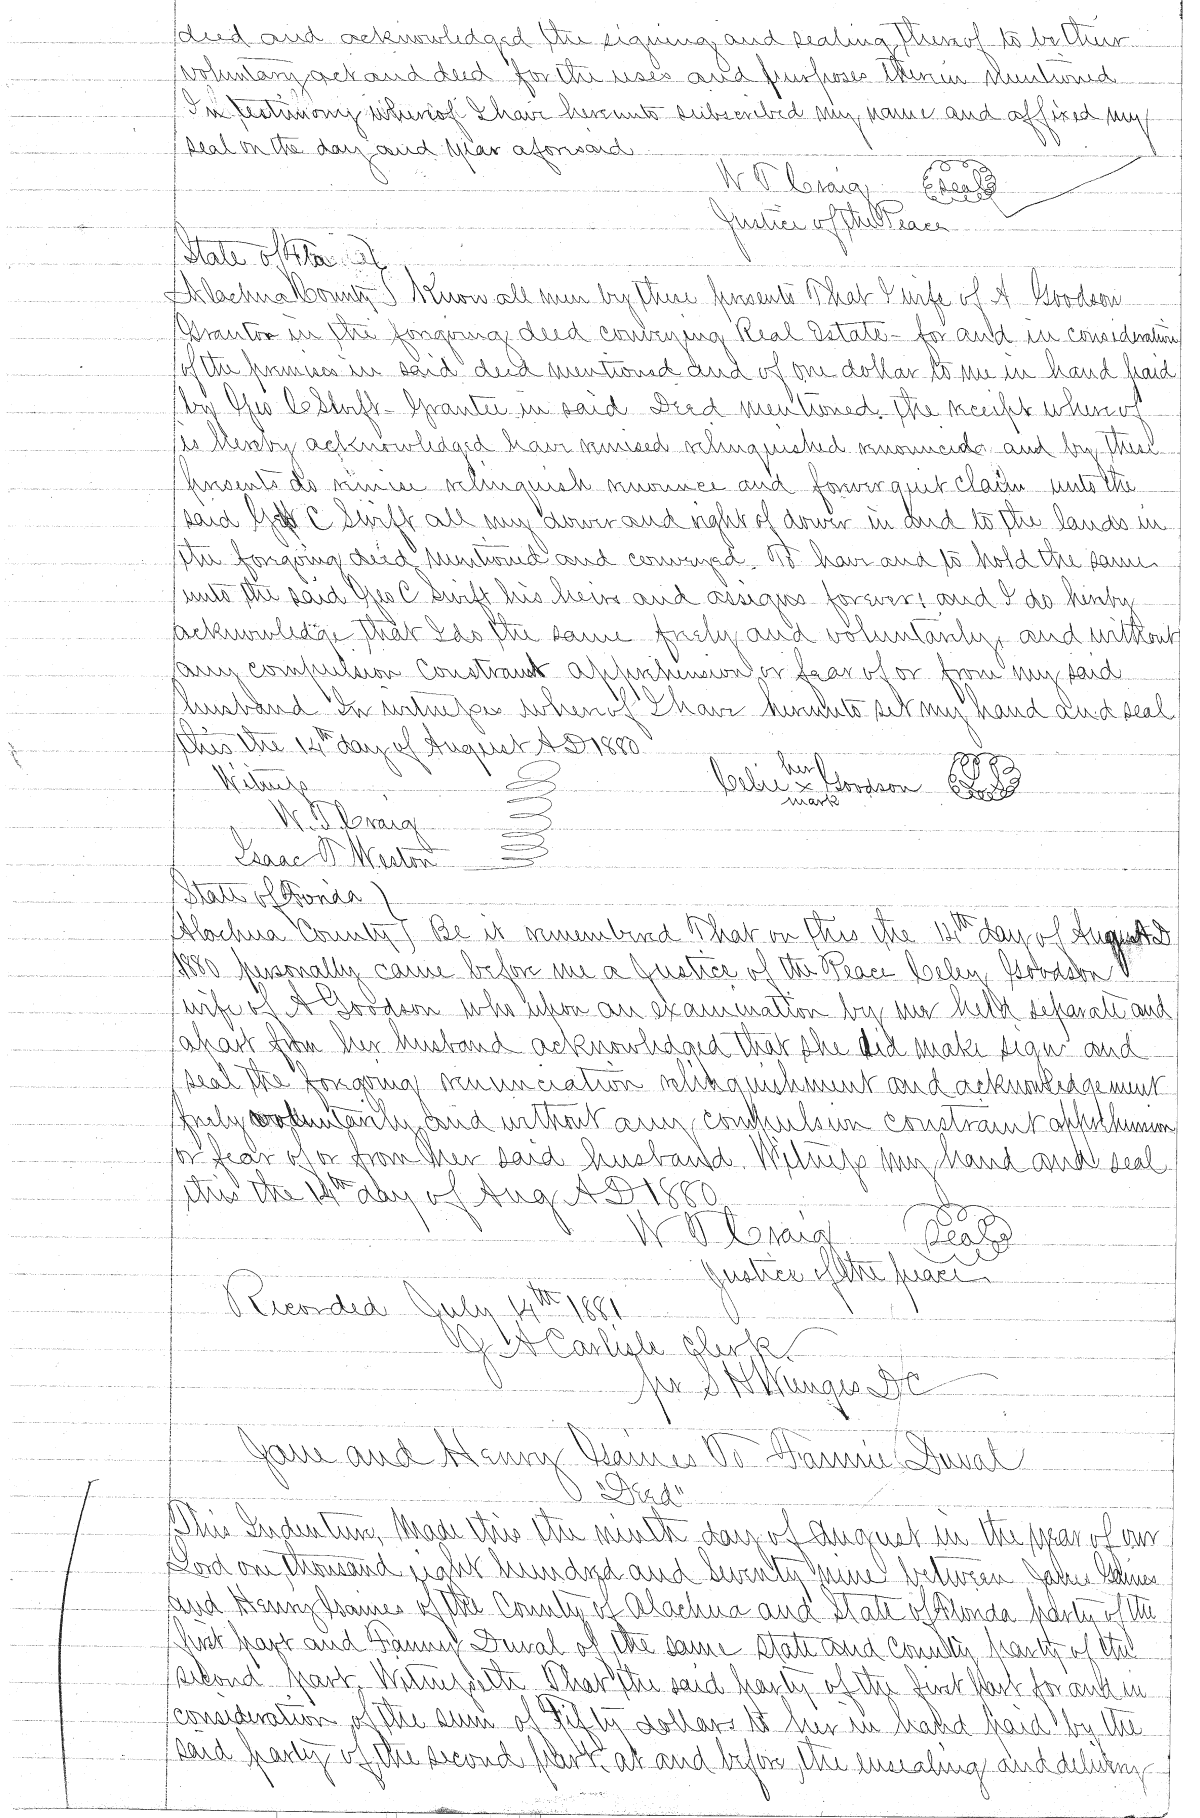 deed and acknowledged the signing and sealing thereof to be their
voluntary act and deed for the uses and purposes therein mentioned
In testimony whereof I have hereunto subscribed my name and affixed my
seal on the day and year aforesaid
W T Craig Seal
Justice of the Peace
State of Fla
Alachua County } Know all men by these presents That I wife of A Goodson
Grantor in the forgoing deed conveying Real Estate - for and in consideration
of the premises in said deed mentioned and of one dollar to me in hand paid
by Geo C Swift - Grantee in said Deed mentioned. The receipt whereof
is hereby acknowledged have remised relinquished renounced and by these
presents do remise relinquish renounce and forever quit claim unto the
said Geo C Swift all my dower and right of dower in and to the lands in
the forgoing deed mentioned and conveyed. To have and to hold the same
unto the said Geo C Swift his heirs and assigns forever; and I do hereby
acknowledge that I do the same freely and voluntarily, and without
any compulsion constraint apprehension or fear of or from my said
husband In witness whereof I have hereunto set my hand and seal
this the 14th day of August A D 1880
Witness her
Celie x Goodson Seal
mark
W. T. Craig
Isaac T Weston
State of Florida }
Alachua County } Be it remembered That on this the 14th day of August A D
1880 personally came before me a Justice of the Peace Celey Goodson
wife of A Goodson who upon an examination by me held separate and
apart from her husband acknowledged that she did make sign and
seal the forgoing renunciation relinquishment and acknowledgement
freely voluntarily and without any compulsion constraint apprehension
or fear of or from her said husband. Witness my hand and seal
this the 14th day of Aug A D 1880
W T Craig Seal
Justice of the peace
Recorded July 14th 1881
J A Carlisle Clerk
per S H Wienges D C
Jane and Henry Gaines To Fannie Duval
"Deed"
This Indenture, Made this the ninth day of August in the year of our
Lord one thousand eight hundred and Seventy nine between Jane Gaines
and Henry Gaines of the County of Alachua and State of Florida party of the
first part and Fanny Duval of the same State and County party of the
second part, Witnesseth That the said party of the first part for and in
consideration of the sum of Fifty dollars to her in hand paid by the
said party of the second part, at and before the ensealing and delivery